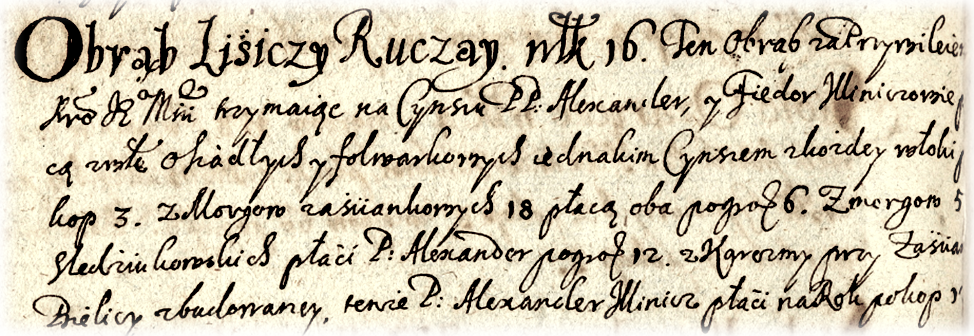 Obrąb Liśiczy Ruczay. włk 16. Ten Obrąb za Przywileiem
Kro Je Mći trzymaiąc na Cynsiu PP: Alexander, y Fiedor Illiniczowie
cą z włk Ośiadłych y folwarkowych iednakim Cynszem z kożdey włoki
kop 3. Z Morgow zaśćiankowych 18 płacą oba po groszy 6. Z morgow 5
Sledziukowskich płaći P: Alexander po groszy 12. z Karczmy przy Zaśćia
Bielicy zbudowaney, tenże P: Alexander Illinicz płaći na Rok po kop